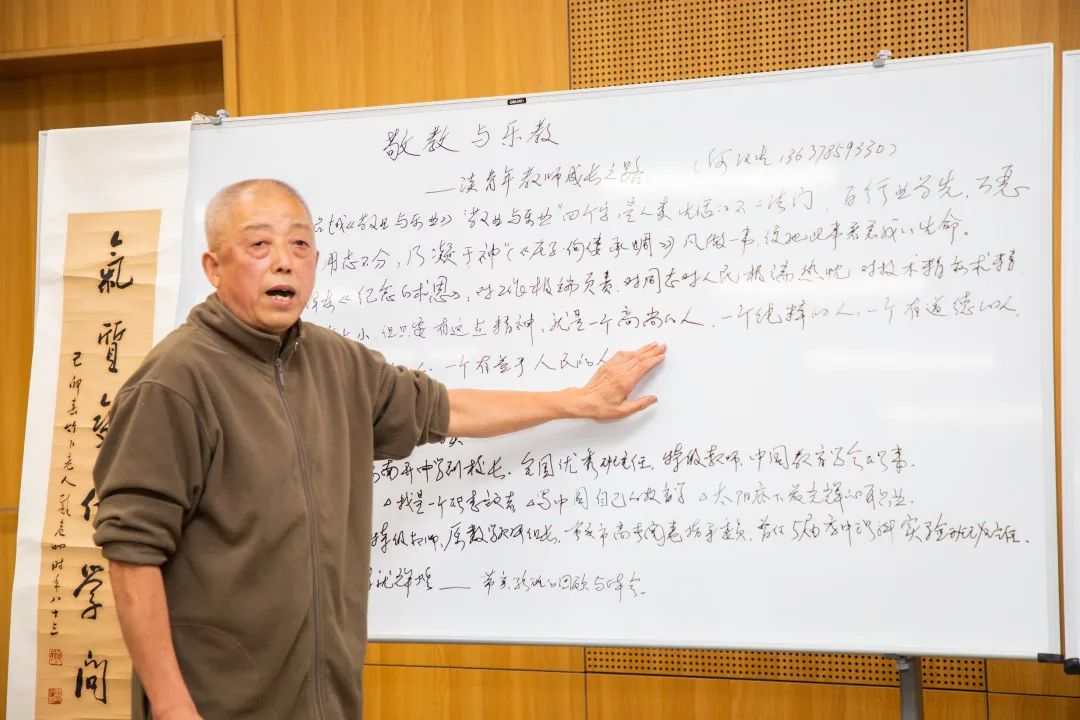 敬教与乐教
——谈青年教师成长之路 13637859330)
《敬业与乐业》"敬业与乐业"四个字,是人类生活的不二法门,百行业为先,万恶
用志不分,乃凝于神"(《庄子 佝偻承蜩》)凡做一事,便把此事看成我的生命。
《纪念白求恩》,对工作极端负责,对同志对人民极端热忱,对技术精益求精
大小,但只要有这点精神,就是一个高尚的人,一个纯粹的人,一个有道德的人,
一个有益于人民的人
南开中学副校长,全国优秀班主任,特级教师,中国教育学会理事。
△我是一个理想主义者 △写中国自己的教育学 △太阳底下最光辉的职业。
特级教师,原数学教研组长,重庆市高考阅卷指导委员,曾任5届
——的回顾与体会。
氣質變化學問
己卯春竹下老人 时年八十三